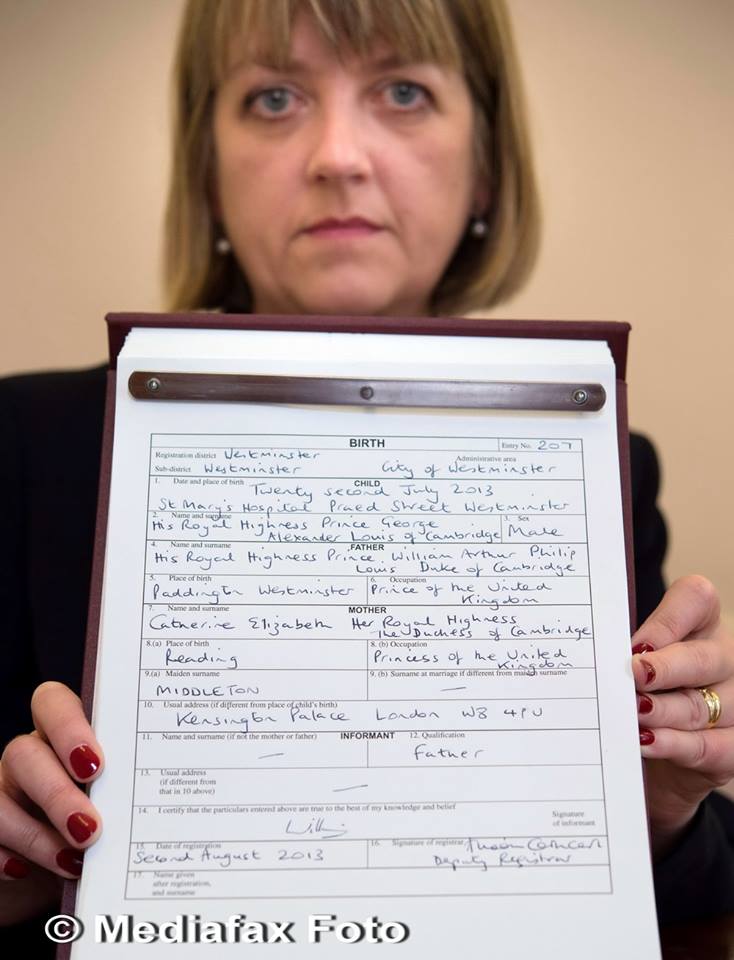 BIRTH
Entry No. 207
Registration district Westminster
Administrative area
Sub-district Westminster City of Westminster
1. Date and place of birth CHILD
Twenty second July 2013
St Mary's Hospital Praed Street Westminster
2. Name and surname 3. Sex
His Royal Highness Prince George
Alexander Louis of Cambridge Male
4. Name and surname FATHER
His Royal Highness Prince William Arthur Philip
Louis Duke of Cambridge
5. Place of birth 6. Occupation
Paddington Westminster Prince of the United
Kingdom
7. Name and surname MOTHER
Catherine Elizabeth Her Royal Highness
The Duchess of Cambridge
8.(a) Place of birth 8. (b) Occupation
Reading Princess of the United
Kingdom
9.(a) Maiden surname 9. (b) Surname at marriage if different from maiden surname
MIDDLETON —
10. Usual address (if different from place of child's birth)
Kensington Palace London W8 4PU
11. Name and surname (if not the mother or father) INFORMANT 12. Qualification
— Father
13. Usual address
(if different from
that in 10 above) —
14. I certify that the particulars entered above are true to the best of my knowledge and belief
Signature
of informant
15. Date of registration 16. Signature of registrar
Second August 2013
Deputy Registrar
17. Name given
after registration,
and surname
© Mediafax Foto